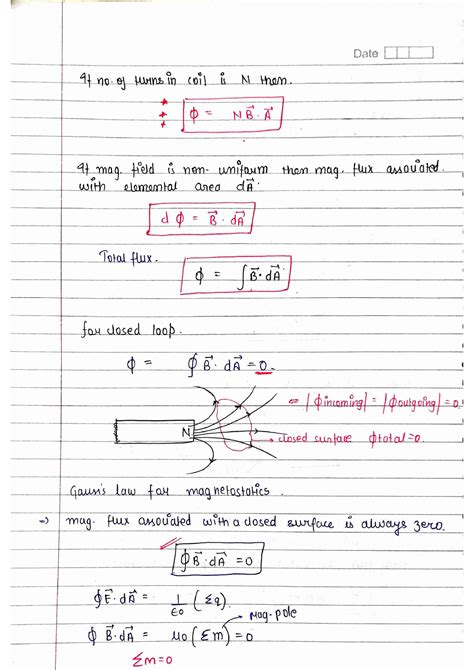 Date
If no. of turns in coil is N then.
ϕ = N B⃗ . A⃗
If mag. field is non- uniform then mag. flux associated
with elemental area dA⃗.
d ϕ = B⃗ . dA⃗
Total flux.
ϕ = ∫ B⃗ . dA⃗
for closed loop.
ϕ = ∮ B⃗ . dA⃗ = 0.
⇐ |ϕ incoming| = |ϕ outgoing| = 0
N
closed surface ϕ total = 0.
Gauss's law for magnetostatics.
⇒ mag. flux associated with a closed surface is always zero.
∮ B⃗ . dA⃗ = 0
∮ E⃗ . dA⃗ = 1/ε0 (Σq)
Mag-pole
∮ B⃗ . dA⃗ = μ0 (Σm)
Σm = 0